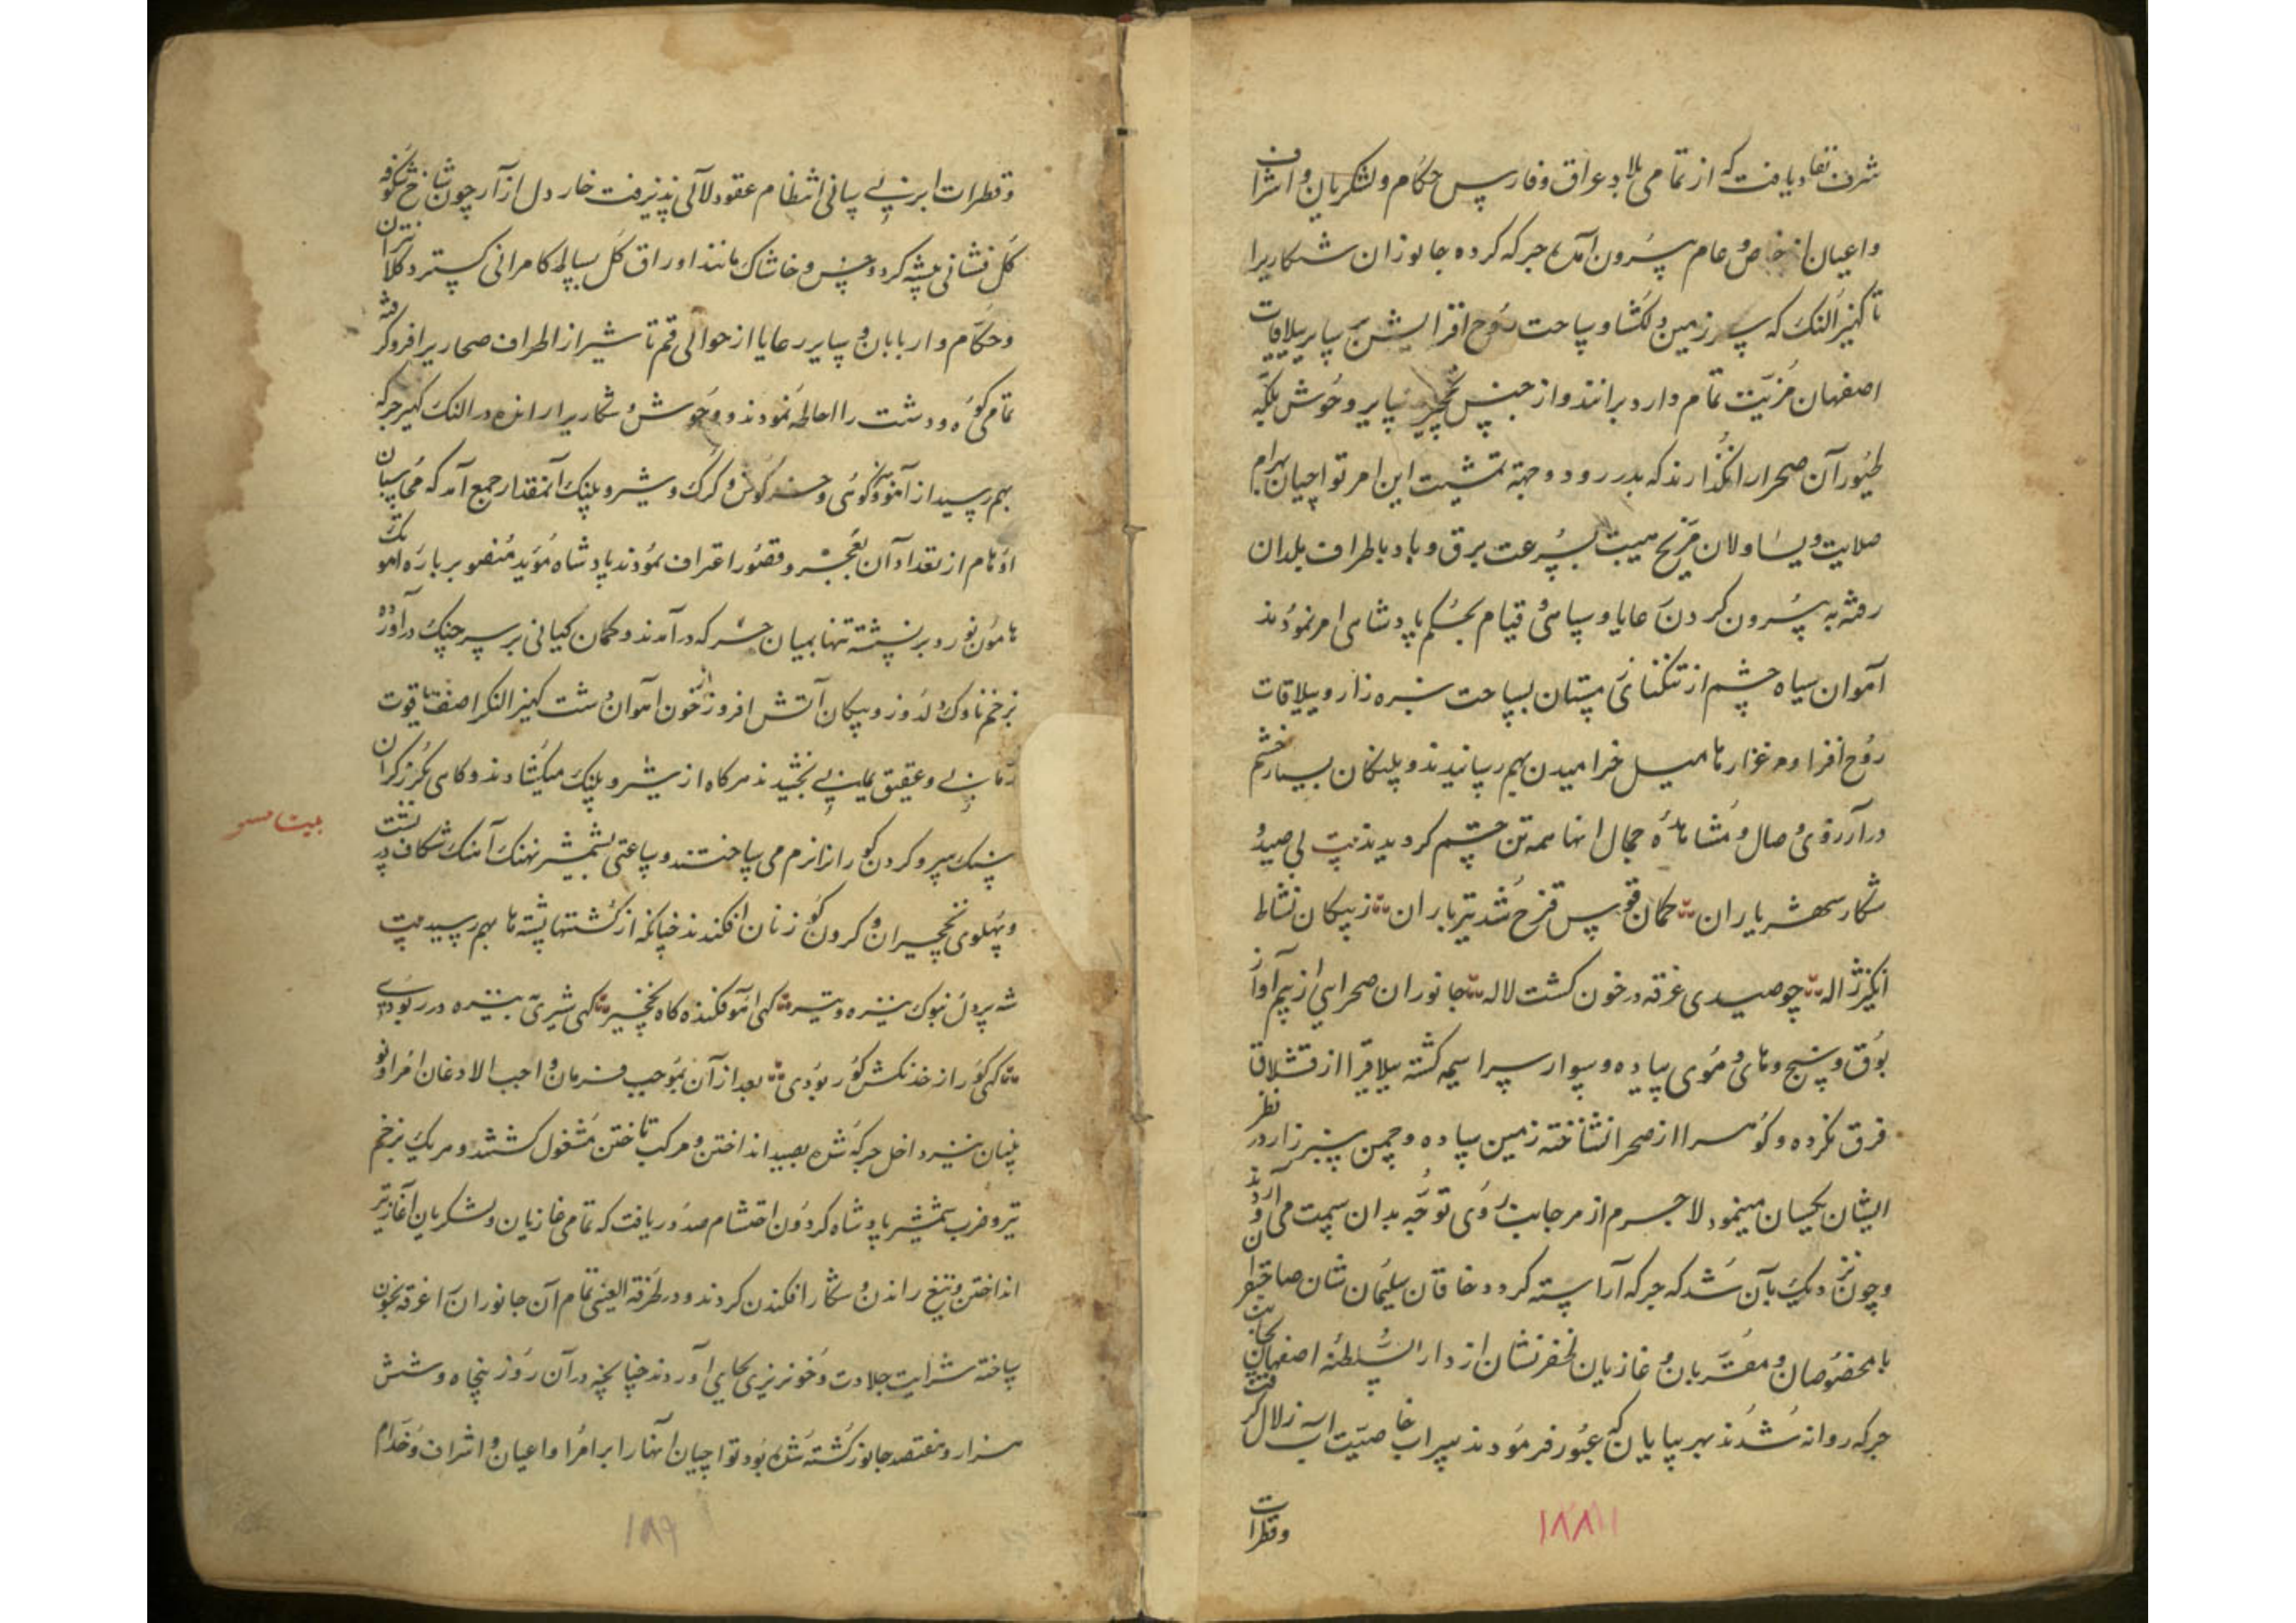 شرف نفاد یافت که از تمامی بلاد عراق و فارس حکام و لشکریان و اشراف
واعیان از خاص و عام بیرون آمده جرکه کرده جانوران شکاریرا
تا کهیز النک که سرزمین دلکشا و ساحت روح افزایش بر سایر ییلاقات
اصفهان مزیت تمام دارد برانند و از جنس نخچیر سایر وحوش بلکه
طیور آن صحرا را نگذارند که بدر رود و جهة تمشیت این امر تواچیان بهرام
صلابت و یساولان مریخ هیبت بسرعت برق و باد باطراف بلدان
رفته به بیرون کردن رعایا و سپاهی قیام بحکم پادشاهی امر نمودند
آهوان سیاه چشم از تنکنای بساحت سبزه زار و ییلاقات
روح افزا و مرغزارها میل خرامیدن بهم رسانیدند و پلنکان بسیار خشم
در آرزوی وصال و مشاهده جمال انها همه تن چشم کردیدند بیت پی صید و
شکار شهریاران کمان قوس قزح شد تیر باران ز پیکان نشاط
انکیز ژاله چو صیدی غرقه در خون کشت لاله جانوران صحرایی از بیم آواز
بوق و سنج و های و هوی پیاده و سوار سراسیمه کشته ییلاقرا از قشلاق
فرق نکرده و کوهسرا از صحرا نشناخته زمین ساده و چمن سبزه زار در نظر
ایشان یکسان مینمود لاجرم از هر جانب روی توجه بدان سمت می آوردند
و چون نزدیک بآن شد که جرکه آراسته کردد خاقان سلیمان شان صاحبقران
با مخصوصان و مقربان و غازیان ظفر نشان از دار السلطنه اصفهان بجانب
جرکه روانه شدند بهر بیابان که عبور فرمودند سراب خاصیت آب زلال کرفت
وقطرات
۱۸۸
وقطرات ابر نیسانی انتظام عقود لآلی پذیرفت خار دل ازار چون شاخ شکوفه
کل فشانی پیشه کرد و خس و خاشاک مانند اوراق کل بساط کامرانی کسترد کلانتران
وحکام و اربابان و سایر رعایا از حوالی قم تا شیراز اطراف صحاریرا فرو کرفته
تمامی کوه و دشت را احاطه نمودند و وحوش و شکاریرا رانده در النک کهیز جرکه
بهم رسید از آهو و کوزن و خرکوش و کرک و شیر و پلنک آنمقدار جمع آمد که محاسبان
اوهام از تعداد آن بعجز و قصور اعتراف نمودند پادشاه مؤید منصور بر باره آهوتک
هامون نورد بر نشسته تنها بمیان جرکه در آمدند و کمان کیانی بر سر چنک در آورده
بزخم ناوک دلدوز و پیکان آتش افروز از خون آهوان دشت کهیز النکرا صفت یاقوت
رمانی و عقیق یمنی بخشیدند هر کاه از شیر و پلنک میکشادند و کاهی بکرز کران
سنک سر و کردن کوررانرا نرم می ساختند و ساعتی بشمشیر نهنک آهنک شکاف در پشت
و پهلوی نخچیران و کردن کوزنان افکندند چنانکه از کشتها پشته ها بهم رسید بیت
شه پردل بنوک نیزه و تیر کهی آهو فکنده کاه نخچیر کهی شیری بنیزه در ربودی
کهی کور از خدنکش کور بودی بعد از آن بموجب فرمان واجب الاذعان امرا و نو
ینان نیز داخل جرکه شده بصید انداختن و مرکب تاختن مشغول کشتند و هر یک بزخم
تیر و ضرب شمشیر پادشاه کردون احتشام صدور یافت که تمامی غازیان و لشکریان آغاز تیر
انداختن و تیغ راندن و شکار افکندن کردند و در طرفة العینی تمام آن جانورانرا غرقه بخون
ساخته شرایط جلادت و خونریزی بجای آوردند چنانچه در آن روز پنجاه و شش
هزار و هفتصد جانور کشته شده بود تواچیان آنهارا بر امرا و اعیان و اشراف و خدام
۱۸۹